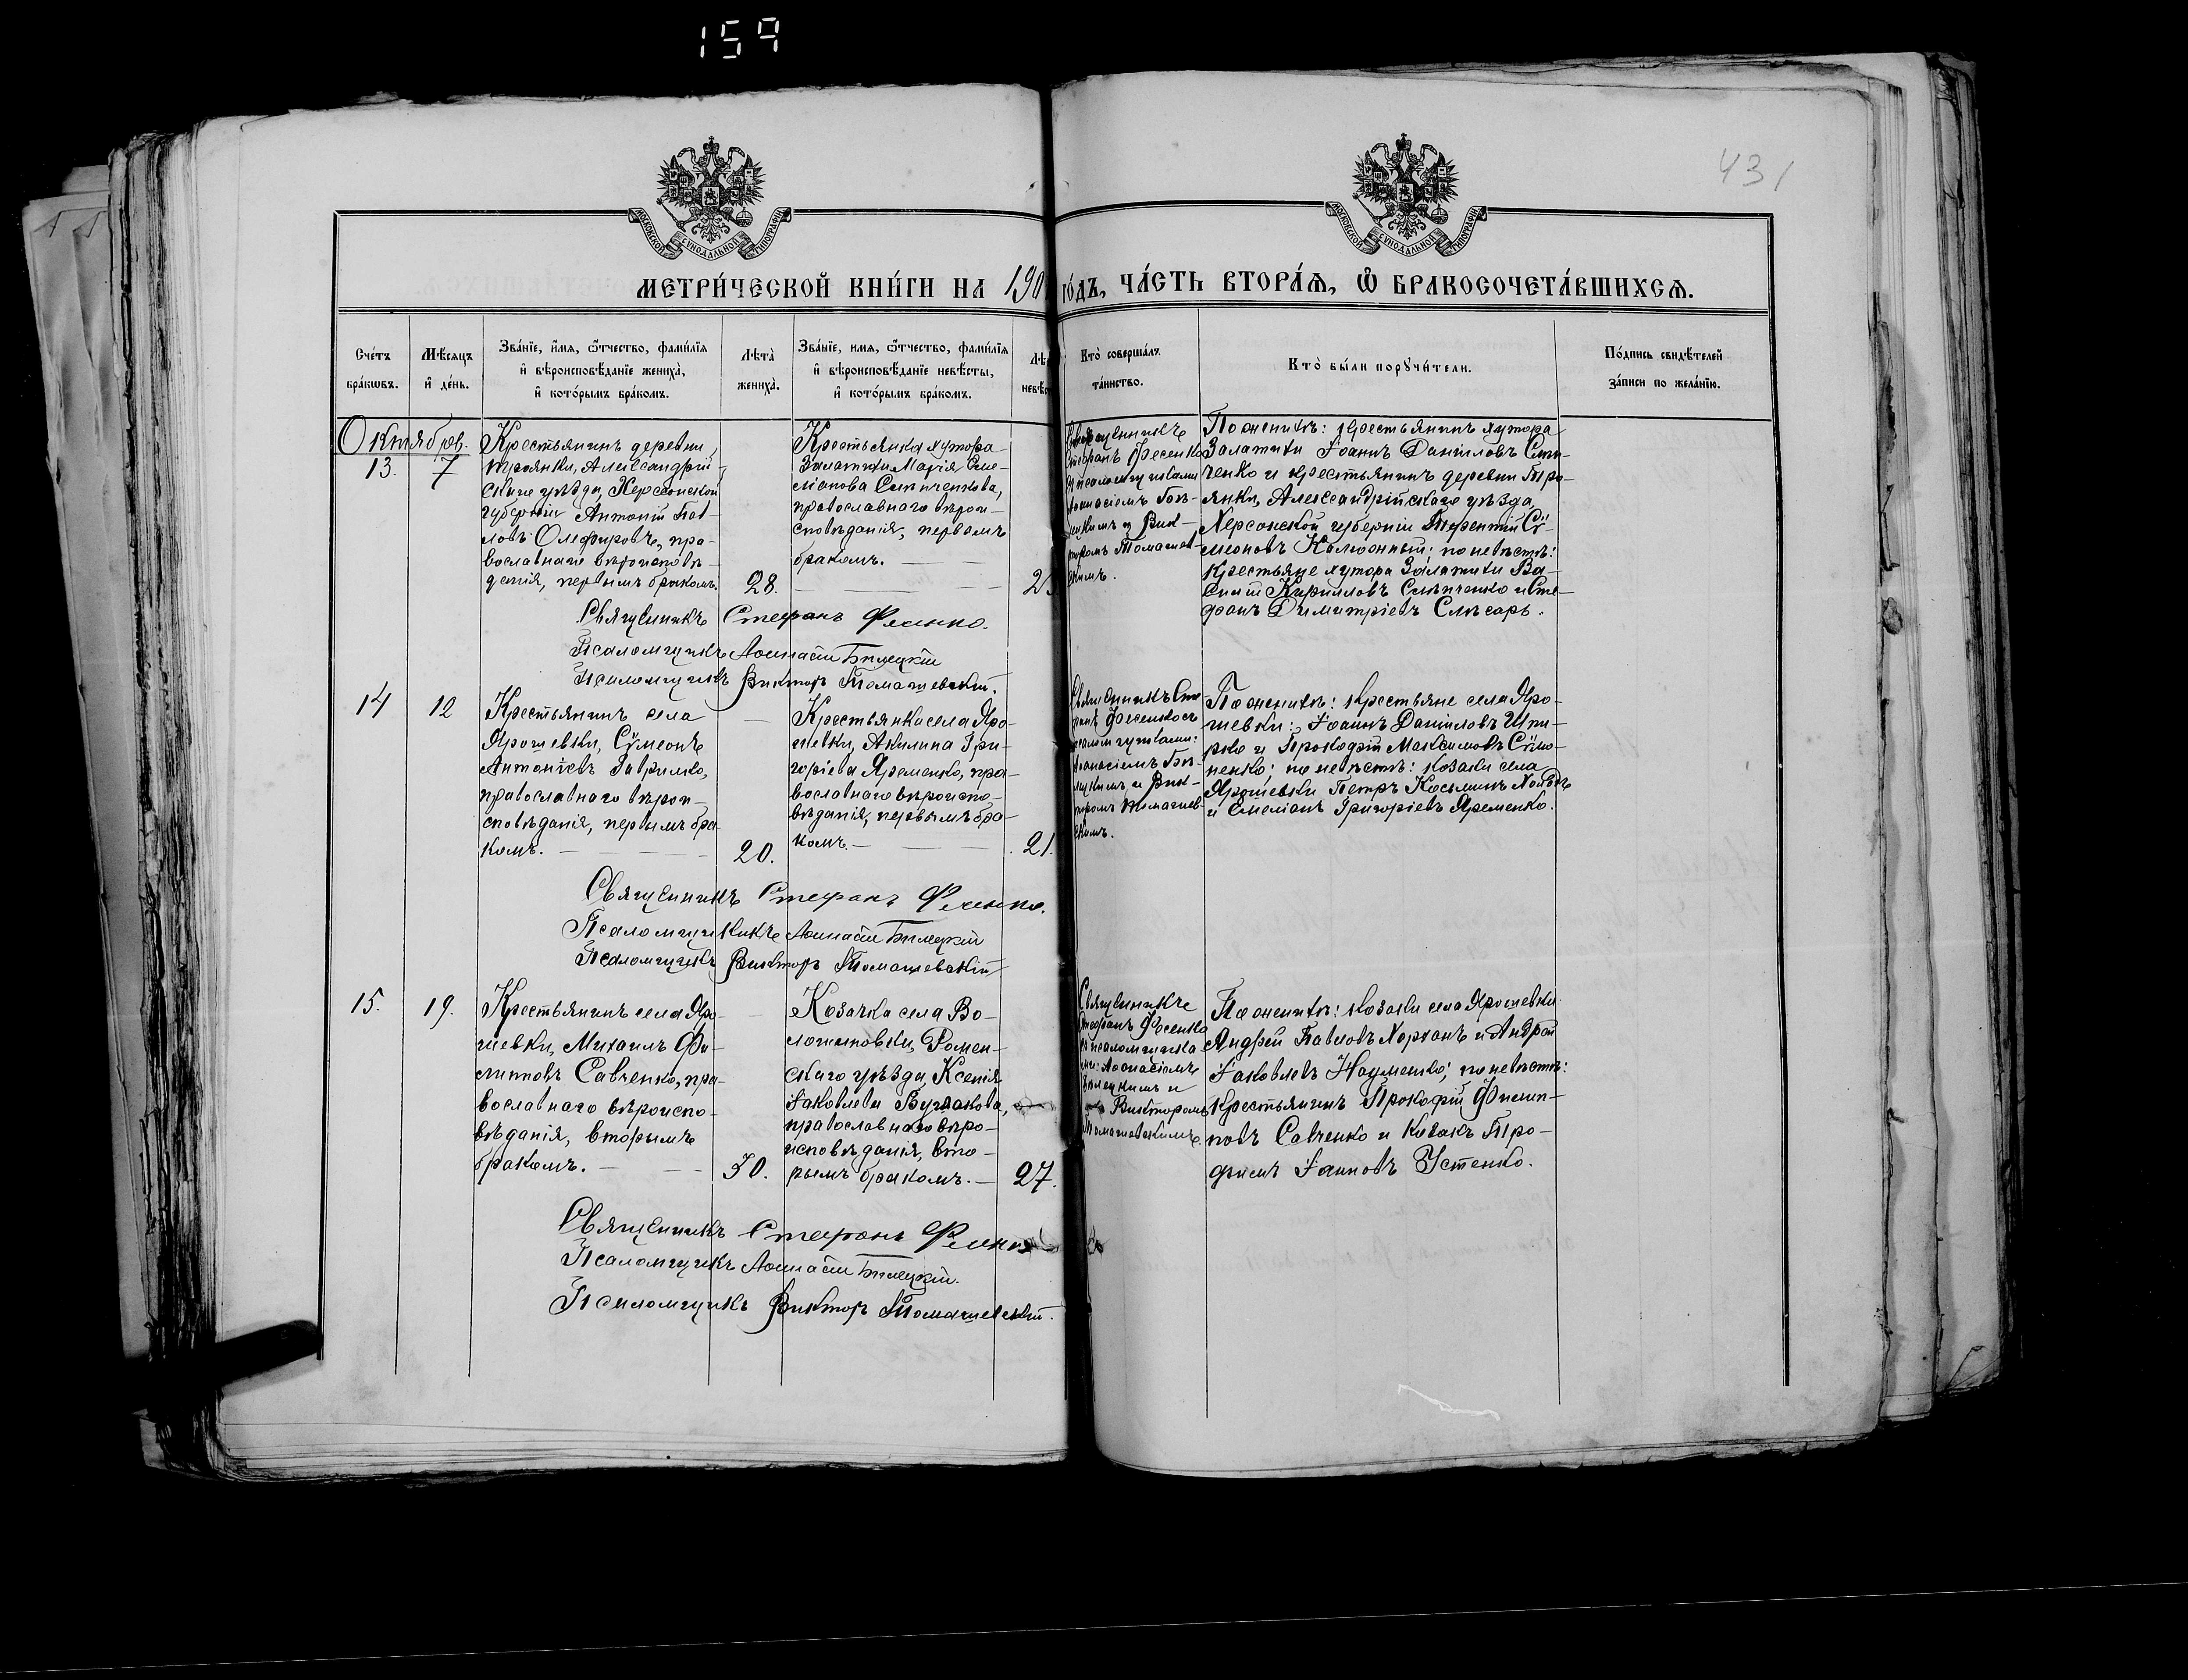 159
431
МОСКОВСКОЙ СѴНОДАЛЬНОЙ ТИПОГРАФІИ
МОСКОВСКОЙ СѴНОДАЛЬНОЙ ТИПОГРАФІИ
МЕТРИ́ЧЕСКОЙ КНИ́ГИ НА 190 ГО́ДЪ, ЧА́СТЬ ВТОРА́Ѧ, Ѽ БРАКОСОЧЕТА́ВШИХСѦ.
Сче́тъ бра́кѡвъ.
Мѣ́сяцъ и҆ де́нь.
Зва́нїе, и҆́мѧ, ѻ҆́тчество, фами́лїѧ
и҆ вѣроисповѣ́данїе жениха̀,
и҆ кото́рымъ бра́комъ.
Лѣта̀ жениха̀.
Зва́нїе, имѧ, ѻ҆́тчество, фами́лїѧ
и҆ вѣроисповѣ́данїе невѣ́сты,
и҆ кото́рымъ бра́комъ.
Кто̀ соверша́лъ
та́инство.
Кто̀ бы́ли порꙋчи́тели.
По́дпись свидѣ́телей
за́писи по жела́нїю.
Октябрь.
13.
7
Крестьянинъ деревни
Троянки, Александрій-
скаго уѣзда, Херсонской
губерніи Антоній Пав-
ловъ Олефировъ, пра-
вославнаго вѣроисповѣ-
данія, первымъ бракомъ.
28.
Крестьянка хутора
Залатихи Марія Сѵме-
православнаго вѣрои-
сповѣданія, первымъ
бракомъ.
Священникъ
Стефанъ Фесенко
псаломщиками
Аѳанасіемъ Бѣ-
лецкимъ и Вик-
торомъ Томашев-
скимъ.
По женихѣ: крестьянинъ хутора
Залатихи Іоаннъ Даніиловъ
и крестьянинъ деревни Тро-
янки, Александрійскаго уѣзда,
Херсонской губерніи Терентій Сѵ-
меоновъ Калюжный; по невѣстѣ:
крестьяне хутора Залатихи Ва-
силій Кирилловъ Слѣпченко и Сте-
фанъ Димитріевъ Слѣсарь.
Священникъ Стефанъ Фесенко.
Псаломщикъ Аѳанасій Билецкій
Псаломщикъ Викторъ Томашевскій.
14
12
Крестьянинъ села
Ярошевки, Сѵмеонъ
Антоніевъ Гаврилко,
православнаго вѣрои-
сповѣданія, первымъ бра-
комъ.
20.
Крестьянка села Яро-
шевки, Акилина Гри-
горіева Яременко, пра-
вославнаго вѣроиспо-
вѣданія, первымъ бра-
комъ.
21.
Священникъ Сте-
фанъ Фесенко съ
псаломщиками:
Аѳанасіемъ Бѣ-
лецкимъ и Вик-
торомъ Томашев-
скимъ.
По женихѣ: крестьяне села Яро-
шевки: Іоаннъ Даніиловъ Шпи-
рко и Прокофій Максимовъ Сѵмо-
ненко; по невѣстѣ: козаки села
Ярошевки Петръ Косьминъ
и Емеліанъ Григоріевъ Яременко.
Священникъ Стефанъ Фесенко.
Псаломщикъ Аѳанасій Билецкій
Псаломщикъ Викторъ Томашевскій
15.
19.
Крестьянинъ села Яро-
шевки, Михаилъ Фи-
липповъ Савченко, пра-
вославнаго вѣроиспо-
вѣданія, вторымъ
бракомъ.
30.
Козачка села Во-
лошновки, Ромен-
скаго уѣзда, Ксенія
Іаковлева
православнаго вѣро-
исповѣданія, вто-
рымъ бракомъ.
27.
Священникъ
Стефанъ Фесенко
съ псаломщика-
ми: Аѳанасіемъ
Билецкимъ и
Викторомъ
Томашевскимъ.
По женихѣ: козаки села Ярошевки
Андрей Павловъ Хорханъ и Андрей
Іаковлевъ Науменко; по невѣстѣ:
крестьянинъ Прокофій Филип-
повъ Савченко и козакъ Тро-
фимъ Іоанновъ Устенко.
Священникъ Стефанъ Фесенко
Псаломщикъ Аѳанасій Билецкій.
Псаломщикъ Викторъ Томашевскій.